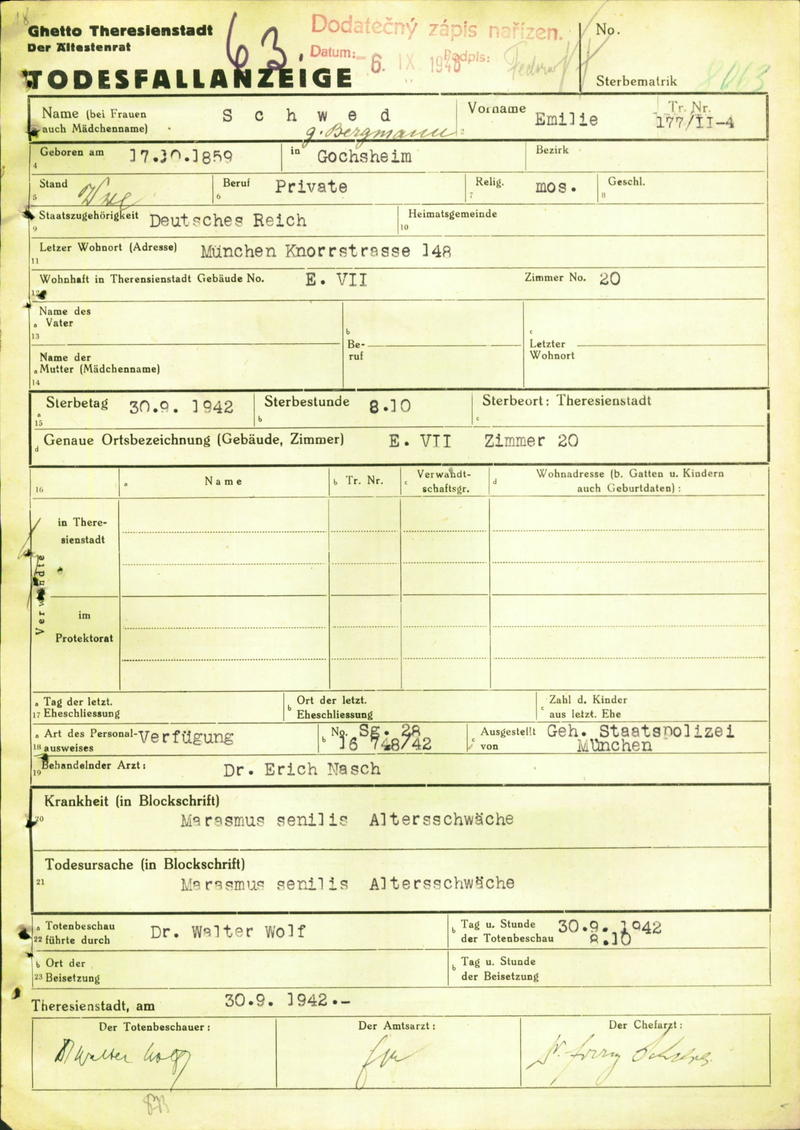 Ghetto Theresienstadt
Der Ältestenrat
63.
Dodatečný zápis nařízen.
Datum: 6. IX 1948 Podpis:
No.
TODESFALLANZEIGE
Sterbematrik
Name (bei Frauen auch Mädchenname) Schwed
g. Bergmann
Vorname Emilie
Tr. Nr. 177/II-4
Geboren am 17.10.1859
4
in Gochsheim
Bezirk
Stand Wwe
5
Beruf Private
6
Relig. mos.
7
Geschl.
8
Staatszugehörigkeit Deutsches Reich
9
Heimatsgemeinde
10
Letzer Wohnort (Adresse) München Knorrstrasse 148
11
Wohnhaft in Therensienstadt Gebäude No. E. VII Zimmer No. 20
Name des
a Vater
13
b
Be-
ruf
c
Letzter
Wohnort
Name der
a Mutter (Mädchenname)
14
a Sterbetag 30.9. 1942
15
b Sterbestunde 8.10
c Sterbeort: Theresienstadt
d Genaue Ortsbezeichnung (Gebäude, Zimmer) E. VII Zimmer 20
16
a Name
b Tr. Nr.
c Verwandt-
schaftsgr.
d Wohnadresse (b. Gatten u. Kindern
auch Geburtdaten) :
Verwandte
in There-
sienstadt
im
Protektorat
a Tag der letzt.
17 Eheschliessung
b Ort der letzt.
Eheschliessung
c Zahl d. Kinder
aus letzt. Ehe
a Art des Personal-
18 ausweises
Verfügung
b No. Sg. 28
16 748/42
c Ausgestellt
von
Geh. Staatspolizei
München
19 Behandelnder Arzt: Dr. Erich Nasch
Krankheit (in Blockschrift)
20 Marasmus senilis Altersschwäche
Todesursache (in Blockschrift)
21 Marasmus senilis Altersschwäche
a Totenbeschau
22 führte durch
Dr. Walter Wolf
b Tag u. Stunde
der Totenbeschau
30.9. 1942
8.10
b Ort der
23 Beisetzung
b Tag u. Stunde
der Beisetzung
Theresienstadt, am 30.9. 1942.-
Der Totenbeschauer:
Der Amtsarzt:
Der Chefarzt:
Dr Walter Wolf